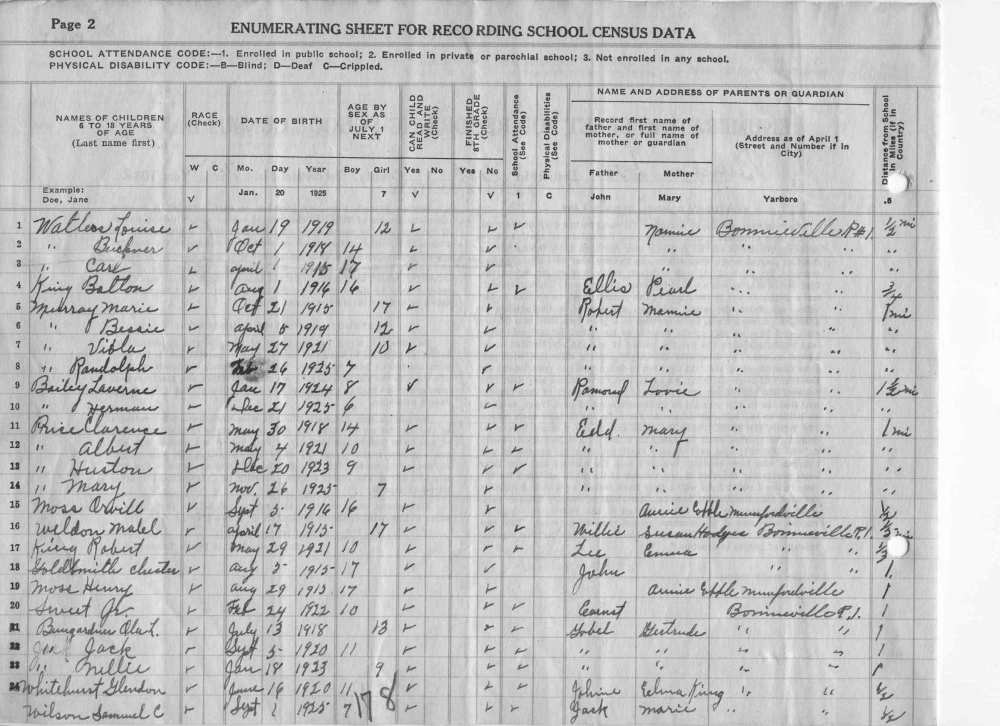 Page 2
ENUMERATING SHEET FOR RECORDING SCHOOL CENSUS DATA
SCHOOL ATTENDANCE CODE:—1. Enrolled in public school; 2. Enrolled in private or parochial school; 3. Not enrolled in any school.
PHYSICAL DISABILITY CODE:—B—Blind; D—Deaf C—Crippled.
NAMES OF CHILDREN 6 TO 18 YEARS OF AGE (Last name first)
RACE (Check)
DATE OF BIRTH
AGE BY SEX AS OF JULY 1 NEXT
CAN CHILD READ AND WRITE (Check)
FINISHED 8TH GRADE (Check)
School Attendance (See Code)
Physical Disabilities (See Code)
NAME AND ADDRESS OF PARENTS OR GUARDIAN
Record first name of father and first name of mother, or full name of mother or guardian
Address as of April 1 (Street and Number if in City)
Distance from School in Miles (if in Country)
W C Mo. Day Year Boy Girl Yes No Yes No Father Mother
Example: Doe, Jane V Jan. 20 1925 7 V V 1 C John Mary Yarboro .5
1 Louise ✓ Jan 19 1919 12 ✓ ✓ ✓ Bonnieville R#1. 1/2 mi
2 " ✓ Oct 1 14 ✓ ✓ " " " " "
3 " ✓ April 1 1915 17 ✓ ✓ " " " " "
4 King ✓ Aug 1 1916 16 ✓ ✓ ✓ Ellis Pearl " " " 3/4
5 Murray Marie ✓ Oct 21 1915 17 ✓ ✓ Robert Mamie " " 1 mi
6 " Bessie ✓ April 5 1919 12 ✓ ✓ " " " " "
7 " Viola ✓ May 27 1921 10 ✓ ✓ " " " " "
8 " Randolph ✓ Feb 26 1925 7 ✓ " " " " "
9 Bailey Laverne ✓ Jan 17 1924 8 ✓ ✓ ✓ Ramond Lovie " " 1 1/2 mi
10 " Herman ✓ Dec 21 1925 6 ✓ " " " " "
11 Price Clarence ✓ May 30 1918 14 ✓ ✓ ✓ Edd. Mary " " 1 mi
12 " Albert ✓ May 4 1921 10 ✓ ✓ ✓ " " " " "
13 " Huston ✓ Dec 20 1923 9 ✓ ✓ ✓ " " " " "
14 " Mary ✓ Nov. 26 1925 7 ✓ " " " " "
15 Moss Orvill ✓ Sept 5 1916 16 ✓ ✓ Annie Munfordville 1/2
16 Weldon Mabel ✓ April 17 1915 17 ✓ ✓ ✓ Willie Susan Hodges Bonnieville R.1.
17 King Robert ✓ May 29 1921 10 ✓ ✓ ✓ Lee Emma " " 1/3
18 Goldsmith Chester ✓ Aug 5 1915 17 ✓ ✓ John " " 1.
19 Moss Henry ✓ Aug 29 1913 17 ✓ ✓ Annie Munfordville 1
20 Sweet Jr. ✓ Feb 24 1922 10 ✓ ✓ ✓ Earnst Bonnieville R.1. 1
21 ✓ July 13 1918 13 ✓ ✓ ✓ Gobel Gertrude " " 1
22 Jack ✓ Sept 5 1920 11 ✓ ✓ ✓ " " " " 1
23 " ✓ Jan 18 1923 9 ✓ ✓ ✓ " " " " 1
24 Whitehurst Glendon ✓ June 16 1920 11 ✓ ✓ ✓ King " " 1/2
Wilson Samuel C ✓ Sept 1 1925 7 ✓ ✓ Jack Marie " " 1/2
178